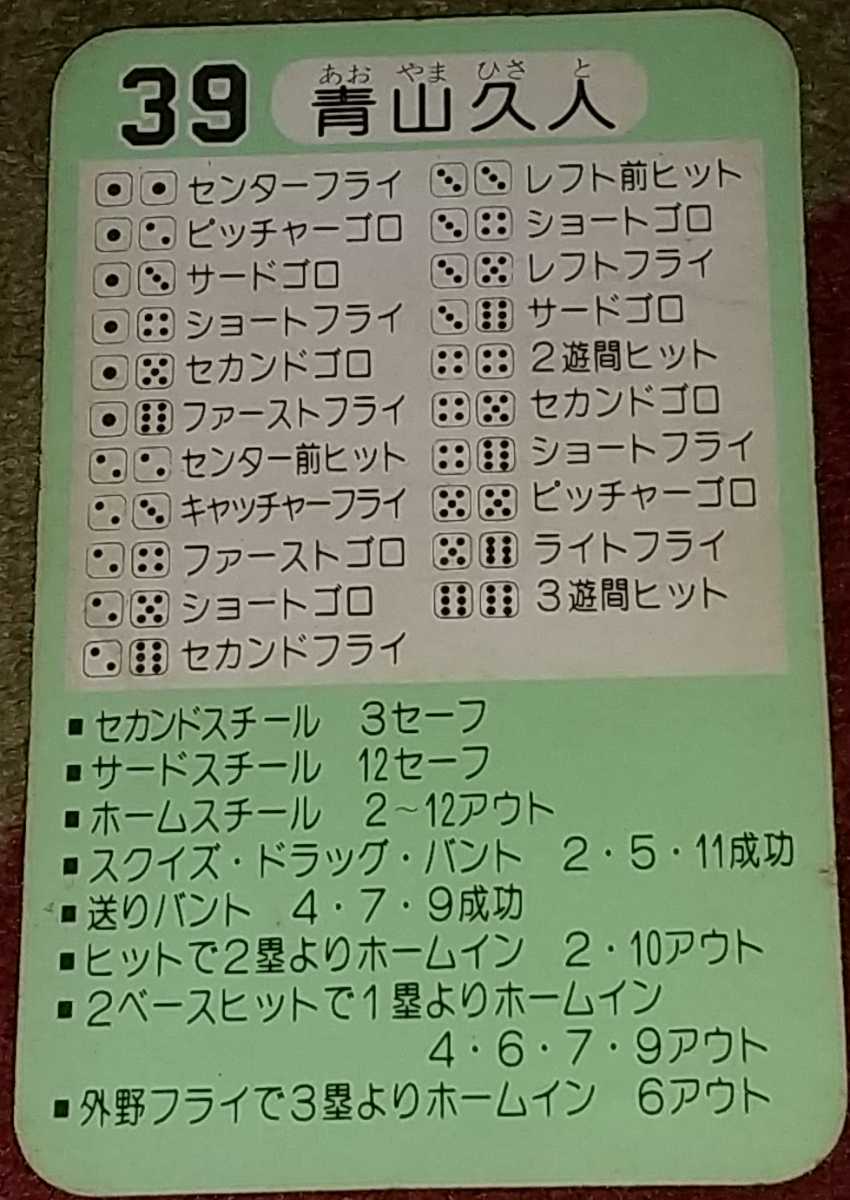 39
あお やま ひさ と
青山久人
センターフライ
ピッチャーゴロ
サードゴロ
ショートフライ
セカンドゴロ
ファーストフライ
センター前ヒット
キャッチャーフライ
ファーストゴロ
ショートゴロ
セカンドフライ
レフト前ヒット
ショートゴロ
レフトフライ
サードゴロ
2遊間ヒット
セカンドゴロ
ショートフライ
ピッチャーゴロ
ライトフライ
3遊間ヒット
■セカンドスチール 3セーフ
■サードスチール 12セーフ
■ホームスチール 2〜12アウト
■スクイズ・ドラッグ・バント 2・5・11成功
■送りバント 4・7・9成功
■ヒットで2塁よりホームイン 2・10アウト
■2ベースヒットで1塁よりホームイン
4・6・7・9アウト
■外野フライで3塁よりホームイン 6アウト